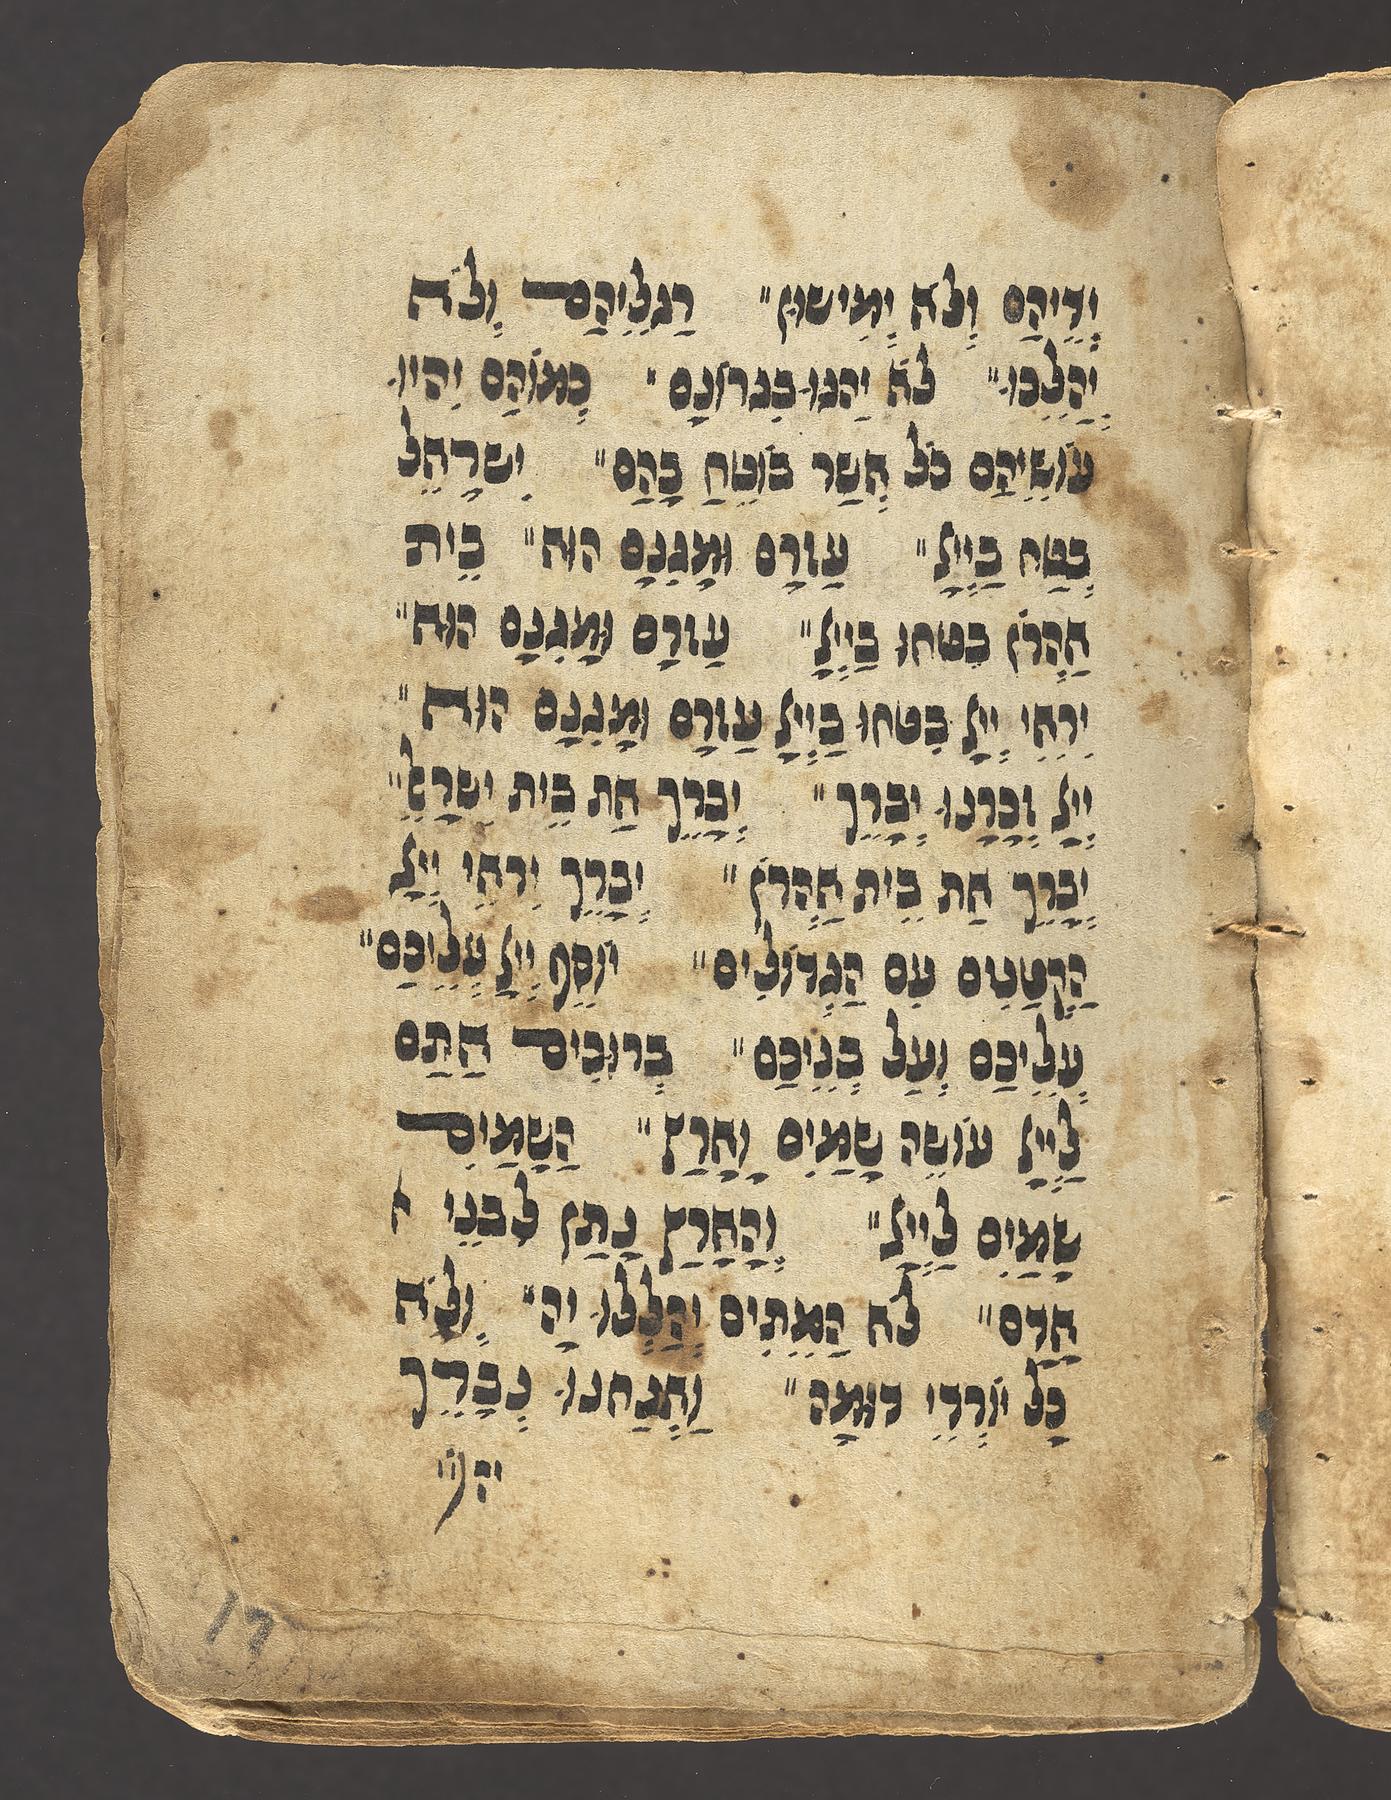 ידיהם ולא ימישון״ רגליהם ולא
יהלכו״ לא יהגו בגרונם״ כמוהם יהיו
עושיהם כל אשר בוטח בהם״ ישראל
בטח ביי״ עזרם ומגנם הוא״ בית
אהרן בטחו ביי״ עזרם ומגנם הוא״
יראי יי בטחו ביי עזרם ומגנם הוא״
יי זכרנו יברך״ יברך את בית ישראל״
יברך את בית אהרן״ יברך יראי יי
הקטנים עם הגדולים״ יוסף יי עליכם״
עליכם ועל בניכם״ ברוכים אתם
ליי עושה שמים וארץ״ השמים
שמים ליי״ והארץ נתן לבני א
אדם״ לא המתים יהללו יה״ ולא
כל יורדי דומה״ ואנחנו נברך
יה
17